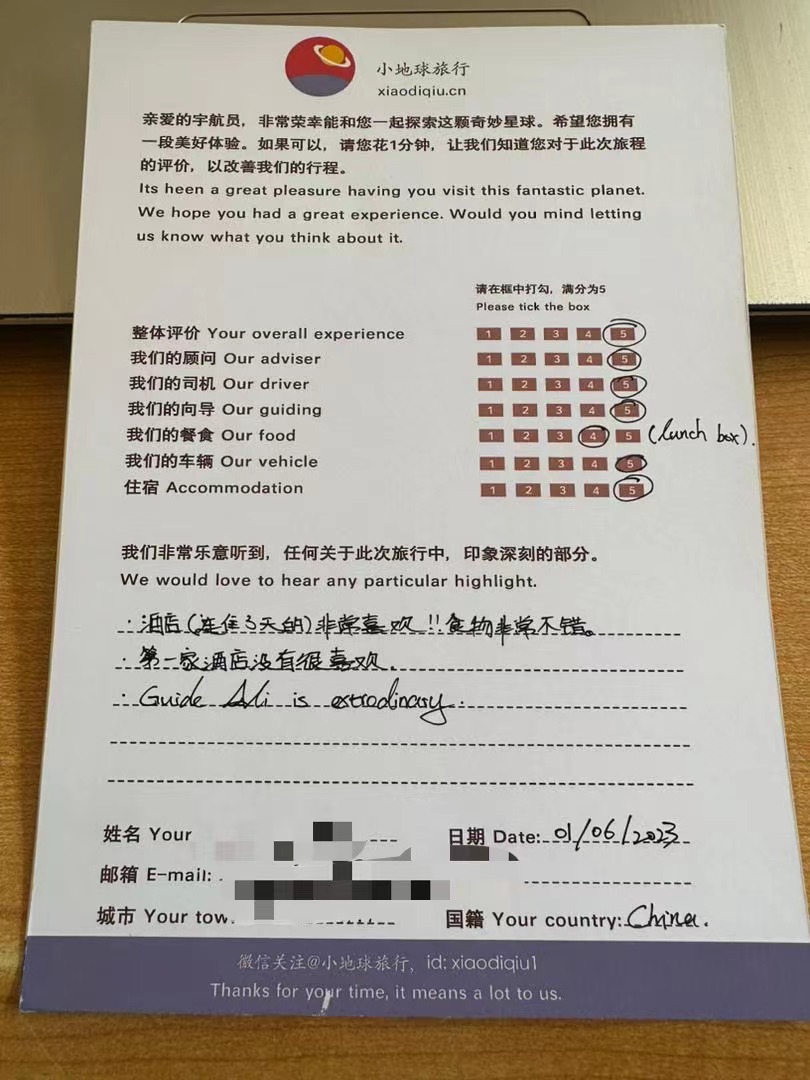 小地球旅行
xiaodiqiu.cn
亲爱的宇航员，非常荣幸能和您一起探索这颗奇妙星球。希望您拥有
一段美好体验。如果可以，请您花1分钟，让我们知道您对于此次旅程
的评价，以改善我们的行程。
Its heen a great pleasure having you visit this fantastic planet.
We hope you had a great experience. Would you mind letting
us know what you think about it.
请在框中打勾，满分为5
Please tick the box
整体评价 Your overall experience 1 2 3 4 5
我们的顾问 Our adviser 1 2 3 4 5
我们的司机 Our driver 1 2 3 4 5
我们的向导 Our guiding 1 2 3 4 5
我们的餐食 Our food 1 2 3 4 5 (lunch box).
我们的车辆 Our vehicle 1 2 3 4 5
住宿 Accommodation 1 2 3 4 5
我们非常乐意听到，任何关于此次旅行中，印象深刻的部分。
We would love to hear any particular highlight.
· 酒店(连住3天的)非常喜欢!!食物非常不错。
· 第一家酒店没有很喜欢.
· Guide Ali is extrodinary.
姓名 Your 日期 Date: 01/06/2023
邮箱 E-mail:
城市 Your tow 国籍 Your country: China.
微信关注@小地球旅行，id: xiaodiqiu1
Thanks for your time, it means a lot to us.